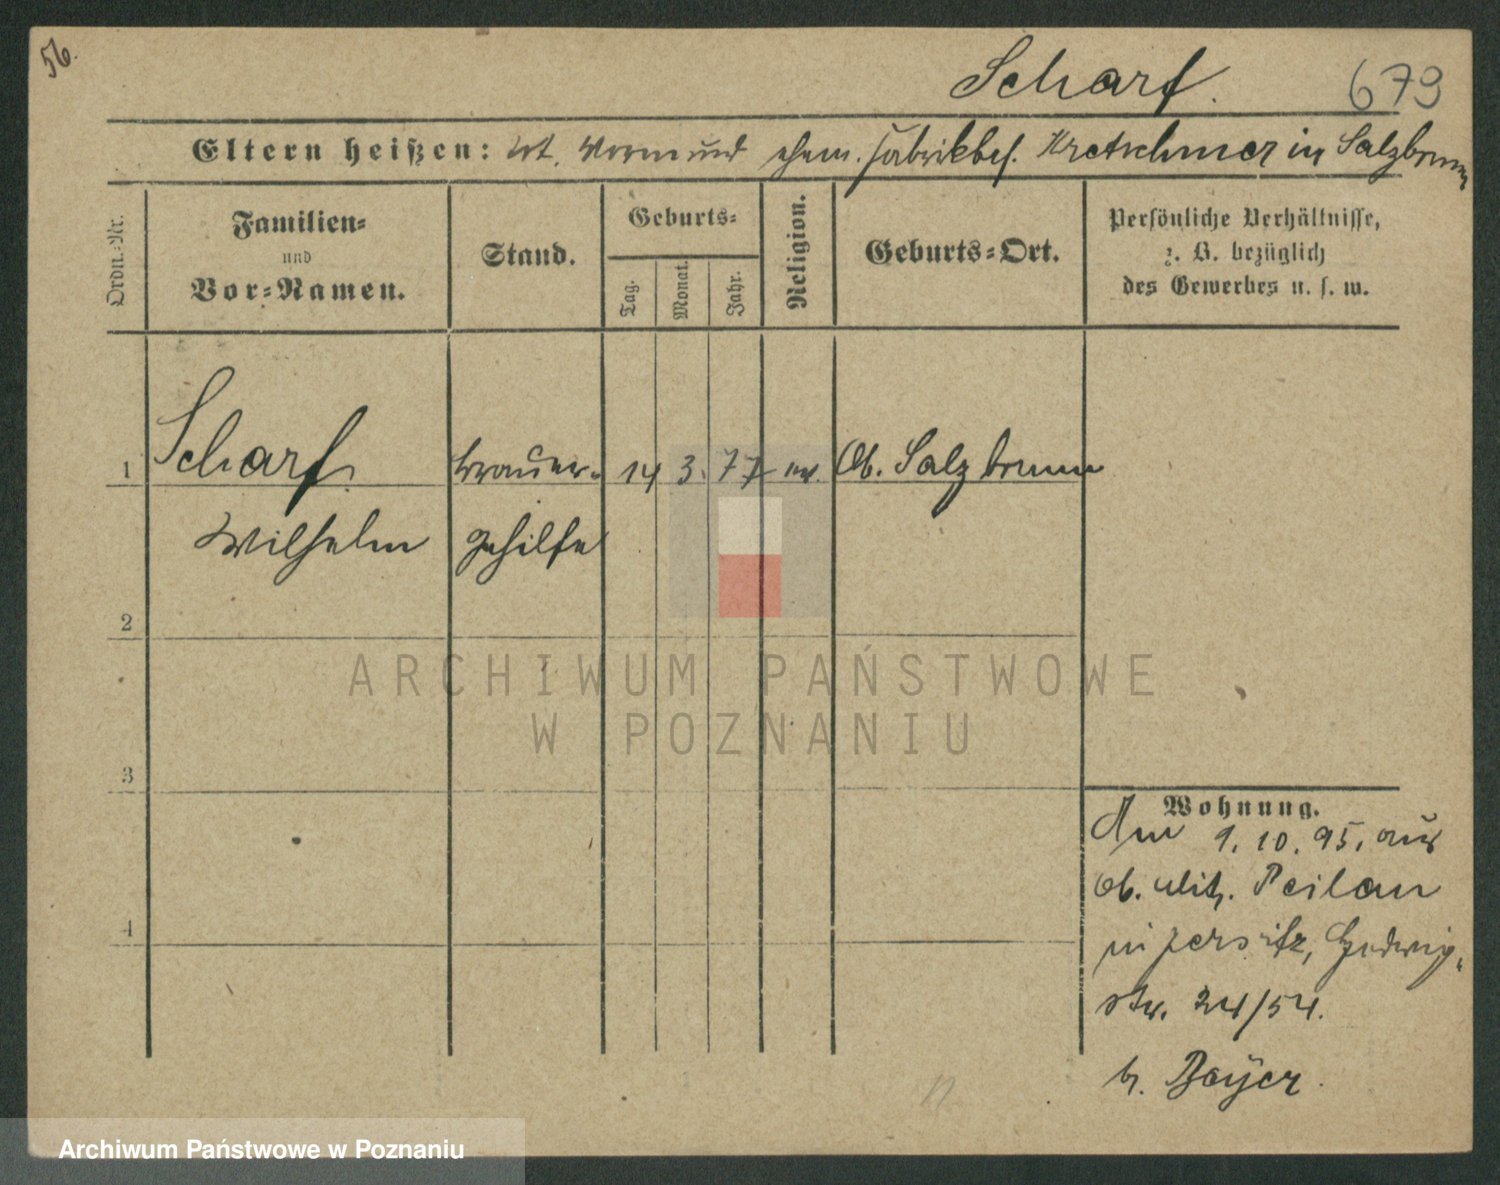 56.
Scharf. 679
Eltern heißen: Vormund ehem. Fabrikbes. Kretschmer in Salzbrunn
Ordn.-Nr.
Familien-
und
Vor-Namen.
Stand.
Geburts-
Tag.
Monat.
Jahr.
Religion.
Geburts-Ort.
Persönliche Verhältnisse,
z. B. bezüglich
des Gewerbes u. s. w.
1 Scharf. Brauer- 14 3. 77 ev. Ob. Salzbrunn
Wilhelm gehilfe
2
3
4
Wohnung.
Am 1. 10. 95. aus
Ob. Mit. Peilau
in Jersitz, Hedwig-
str. 24/54.
b. Bayer.
ARCHIWUM PAŃSTWOWE
W POZNANIU
Archiwum Państwowe w Poznaniu